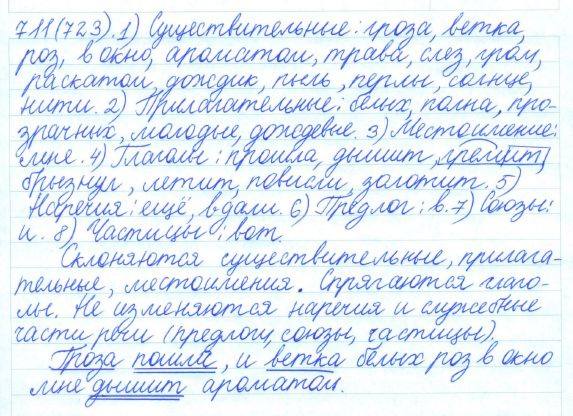 711(723). 1) Существительные: гроза, ветка,
роз, в окно, ароматом, трава, слез, гром,
раскатом, дождик, пыль, перлы, солнце,
нити. 2) Прилагательные: белых, полна, про-
зрачных, молодые, дождевые. 3) Местоимение:
мне. 4) Глаголы: прошла, дышит, гремит,
брызнул, летит, повисли, золотит. 5)
Наречия: ещё, вдали. 6) Предлог: в. 7) Союзы:
и. 8) Частицы: вот.
Склоняются существительные, прилага-
тельные, местоимения. Спрягаются глаго-
лы. Не изменяются наречия и служебные
части речи (предлоги, союзы, частицы).
Гроза пошла, и ветка белых роз в окно
мне дышит ароматом.